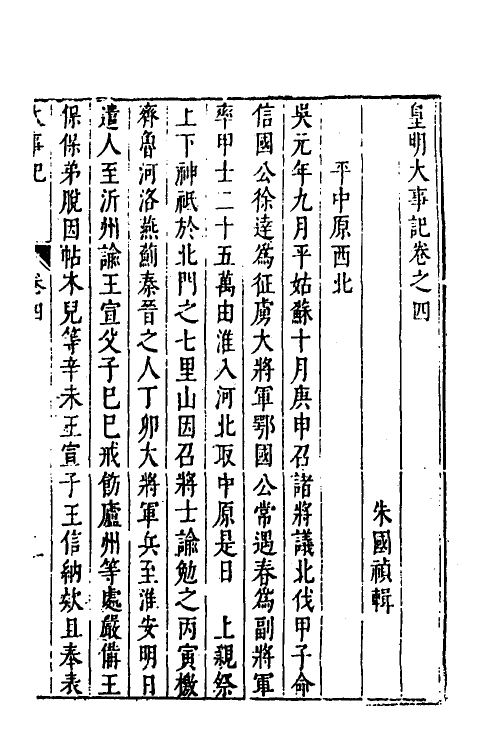 皇明大事記卷之四
朱國禎輯
平中原西北
吳元年九月平姑蘇十月庚申召諸將議北伐甲子命
信國公徐達爲征虜大將軍鄂國公常遇春爲副將軍
率甲士二十五萬由淮入河北取中原是日　上親祭
上下神祗於北門之七里山因召將士諭勉之丙寅檄
齊魯河洛燕薊秦晉之人丁卯大將軍兵至淮安明日
遣人至沂州諭王宣父子巳巳戒飭廬州等處嚴備王
保保弟脫因帖木兒等辛未王宣子王信納欵且奉表
大事記
卷四
一